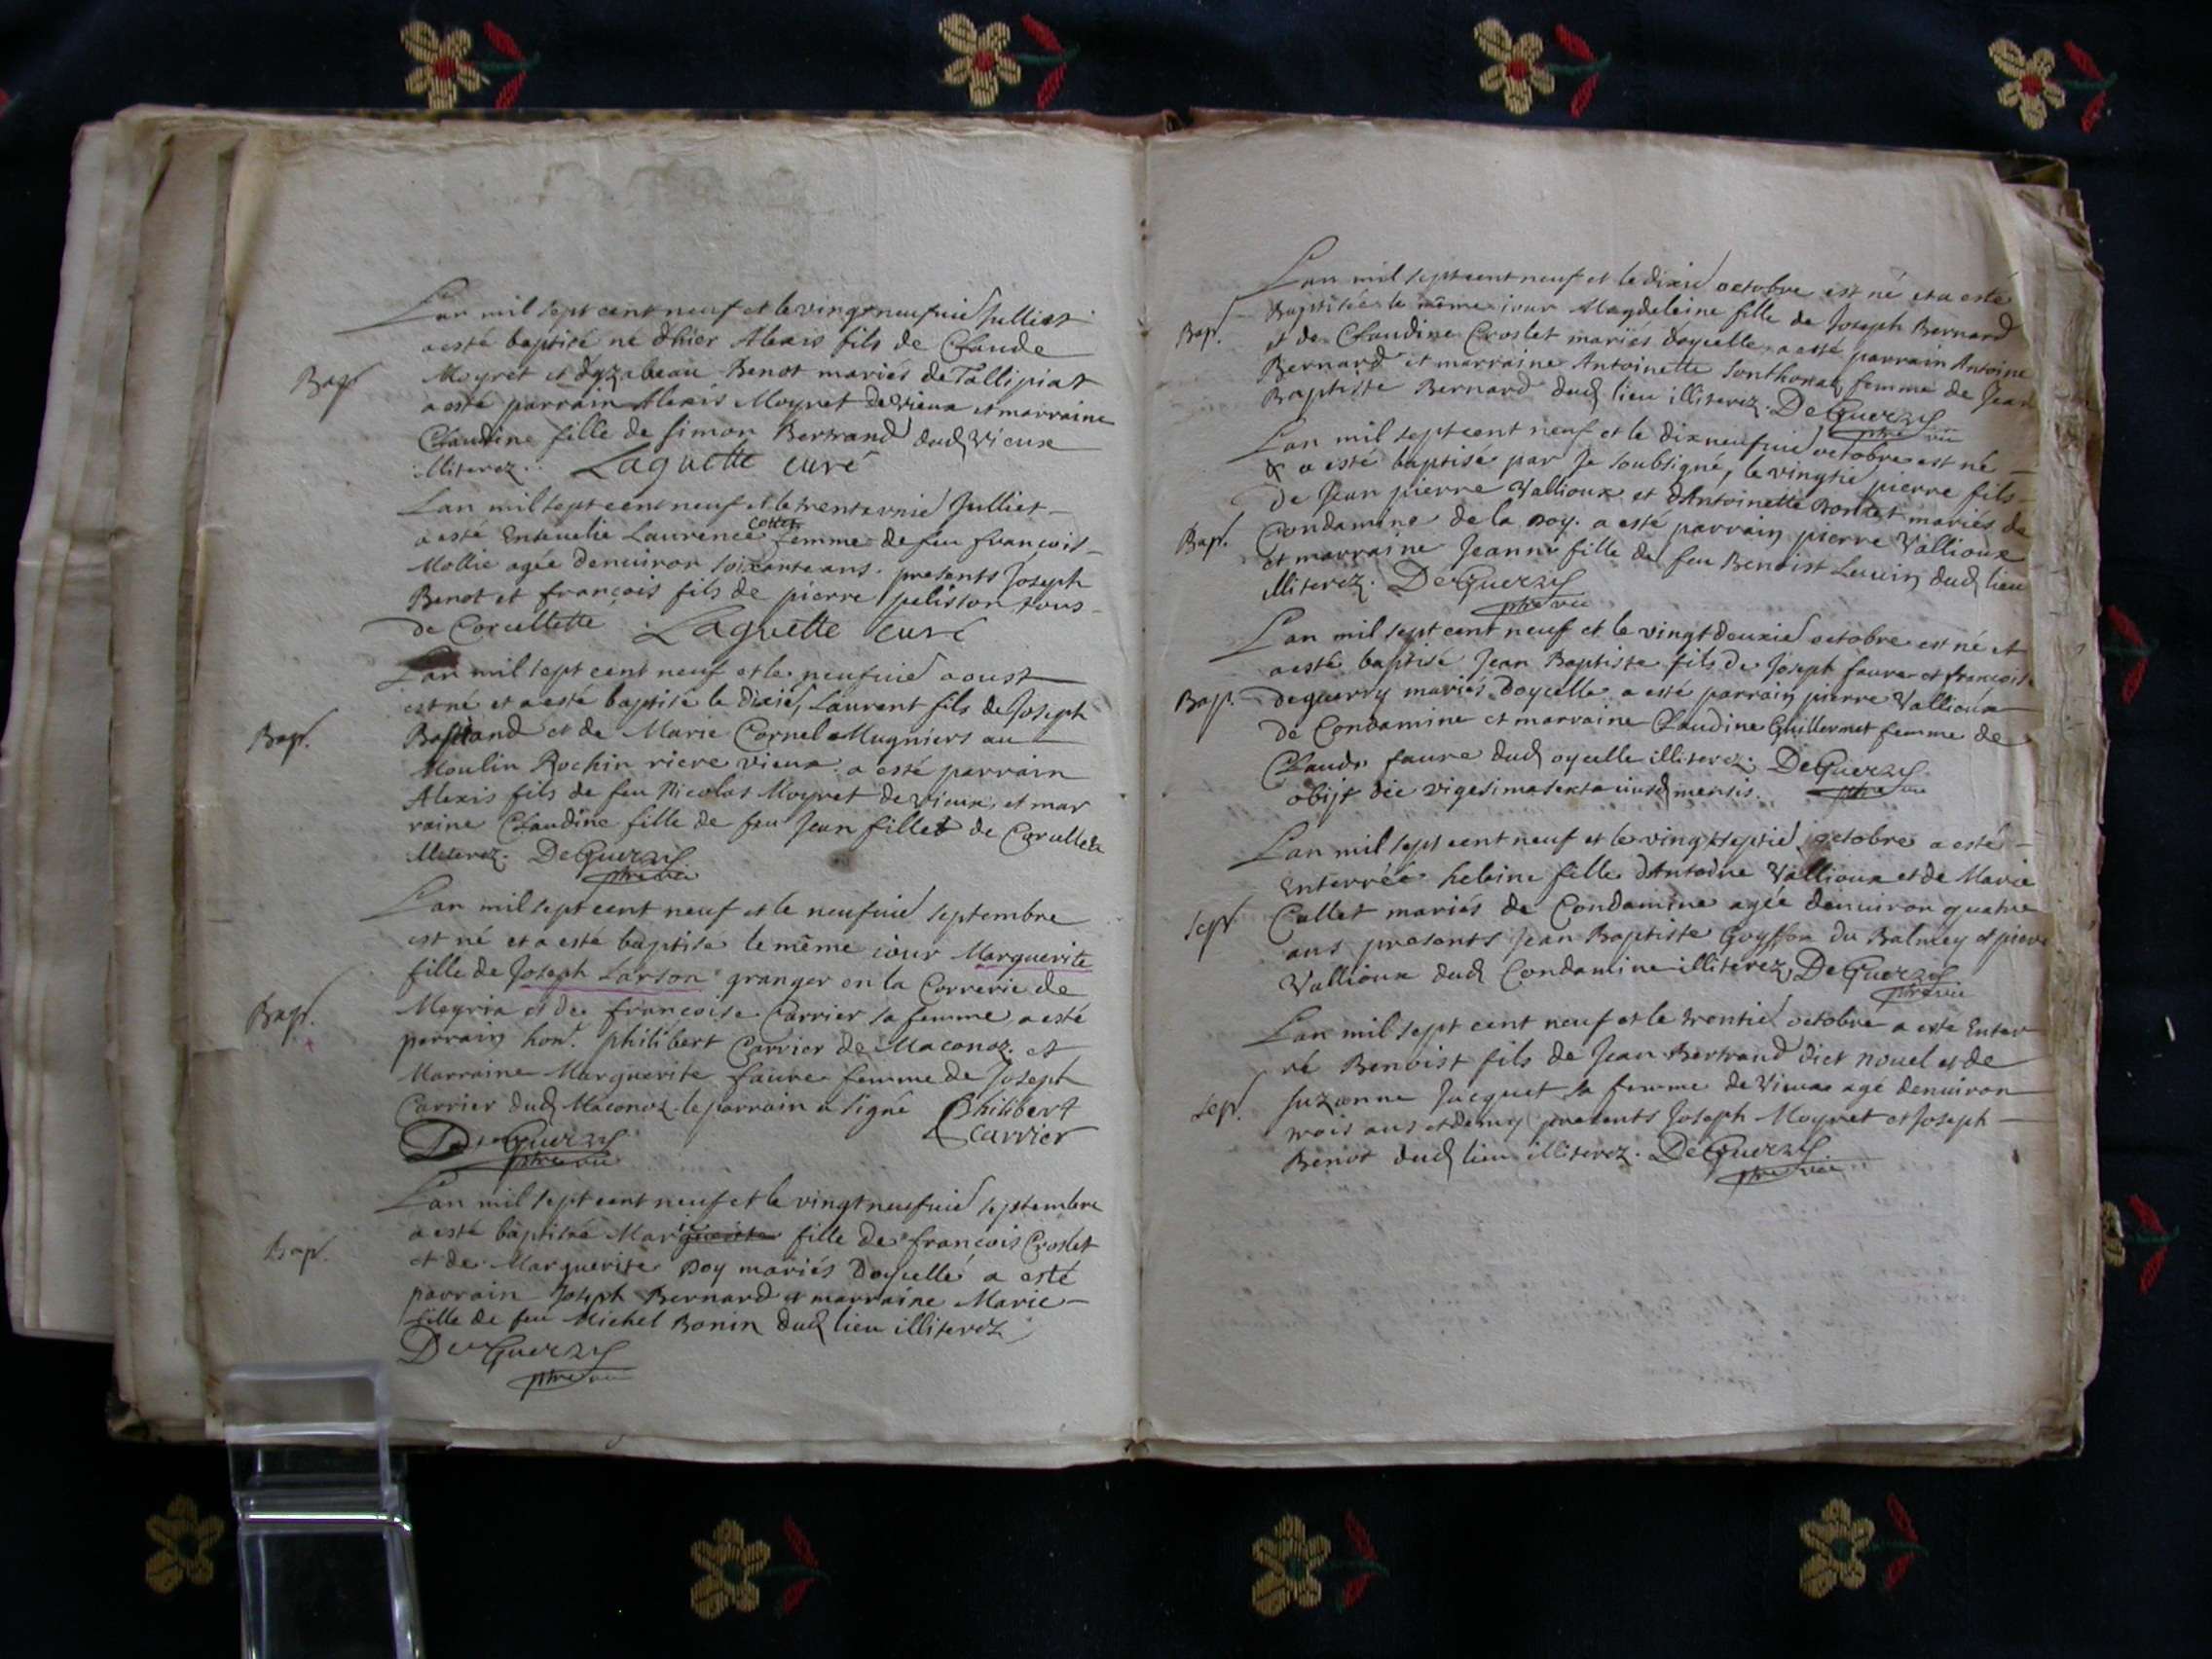 Lan mil sept cent neuf et le vingt neufuie Julliet
a esté baptisé né dhier Alexis fils de Claude
Bap. Moyret et dyzabeau Benot mariés de Tallipiat
a esté parrain Alexis Moyret de vieux et marraine
Claudine fille de Simon Bertrand dud vieux
illiterez. Laguette curé
Lan mil sept cent neuf et le trente vnie Julliet
a esté Enseuelie Laurence Cottet femme de feu françois
Mollie agée denuiron soixante ans. presents Joseph
Benot et françois fils de pierre pelisson tous
de Corcellette Laguette curé
Lan mil sept cent neuf et le neufuie aoust
est né et a esté baptisé le dixie, Laurent fils de Joseph
Bap. et de Marie Cornel Mugniers au
Moulin Rochin riere vieux a esté parrain
Alexis fils de feu Nicolas Moyret de vieux, et mar
raine Claudine fille de feu Jean fillet de
illiterez. DeGuerry
ptre vic
Lan mil sept cent neuf et le neufuie septembre
est né et a esté baptisé le même iour Marguerite
fille de Joseph Larson granger en la Correrie de
Bap. Meyria et de françoise Carrier sa femme a esté
parrain hon. philibert Carrier de Maconoz. et
Marraine Marguerite faure femme de Joseph
Carrier dud Maconoz. le parrain a signé Philibert
Carrier
DeGuerry
ptre vic
Lan mil sept cent neuf et le vingt neufuie septembre
Bap. a esté baptisée Marguerite fille de françois Croslet
et de Marguerite Doy mariés Doyselle a esté
parrain Joseph Bernard et marraine Marie
fille de feu Michel Bonin dud lieu illiterez
DeGuerry
ptre vic
Lan mil sept cent neuf et le dixie octobre est né et a esté
Baptisée le même iour Magdeleine fille de Joseph Bernard
Bap. et de Claudine Croslet mariés doyselle, a esté parrain Antoine
Bernard et marraine Antoinette Sonthonax femme de Jean
Baptiste Bernard dud lieu illiterez. DeGuerry
ptre vic
Lan mil sept cent neuf et le dix neufuie octobre est né
& a esté baptisé par Je soubsigné, le vingtie pierre fils
de Jean pierre Vallioux et dAntoinette mariés de
Bap. Condamine de la Doy. a esté parrain pierre Vallioux
et marraine Jeanne fille de feu Benoist dud lieu
illiterez. DeGuerry
ptre vic
Lan mil sept cent neuf et le vingt deuxie octobre est né et
a esté baptisé Jean Baptiste fils de Joseph faure et françoise
Bap. deguerry mariés doyselle a esté parrain pierre Vallioux
de Condamine et marraine Claudine Guillermet femme de
Claude faure dud oyselle illiterez. DeGuerry
obijt die vigesima sexta eiusd mensis. ptre vic
Lan mil sept cent neuf et le vingt septie octobre a esté
Enterrée heleine fille dAntoine Vallioux et de Marie
Sep. Collet mariés de Condamine agée denuiron quatre
ans presents Jean Baptiste Goyffon du Balmey et pierre
Vallioux dud Condamine illiterez, DeGuerry
ptre vic
Lan mil sept cent neuf et le trentie octobre a esté Enter
ré Benoist fils de Jean Bertrand dict nouel et de
Sep. Suzanne Jacquet sa femme de Vieux agé denuiron
trois ans et demy presents Joseph Moyret et Joseph
Benot dud lieu illiterez. DeGuerry
ptre vic